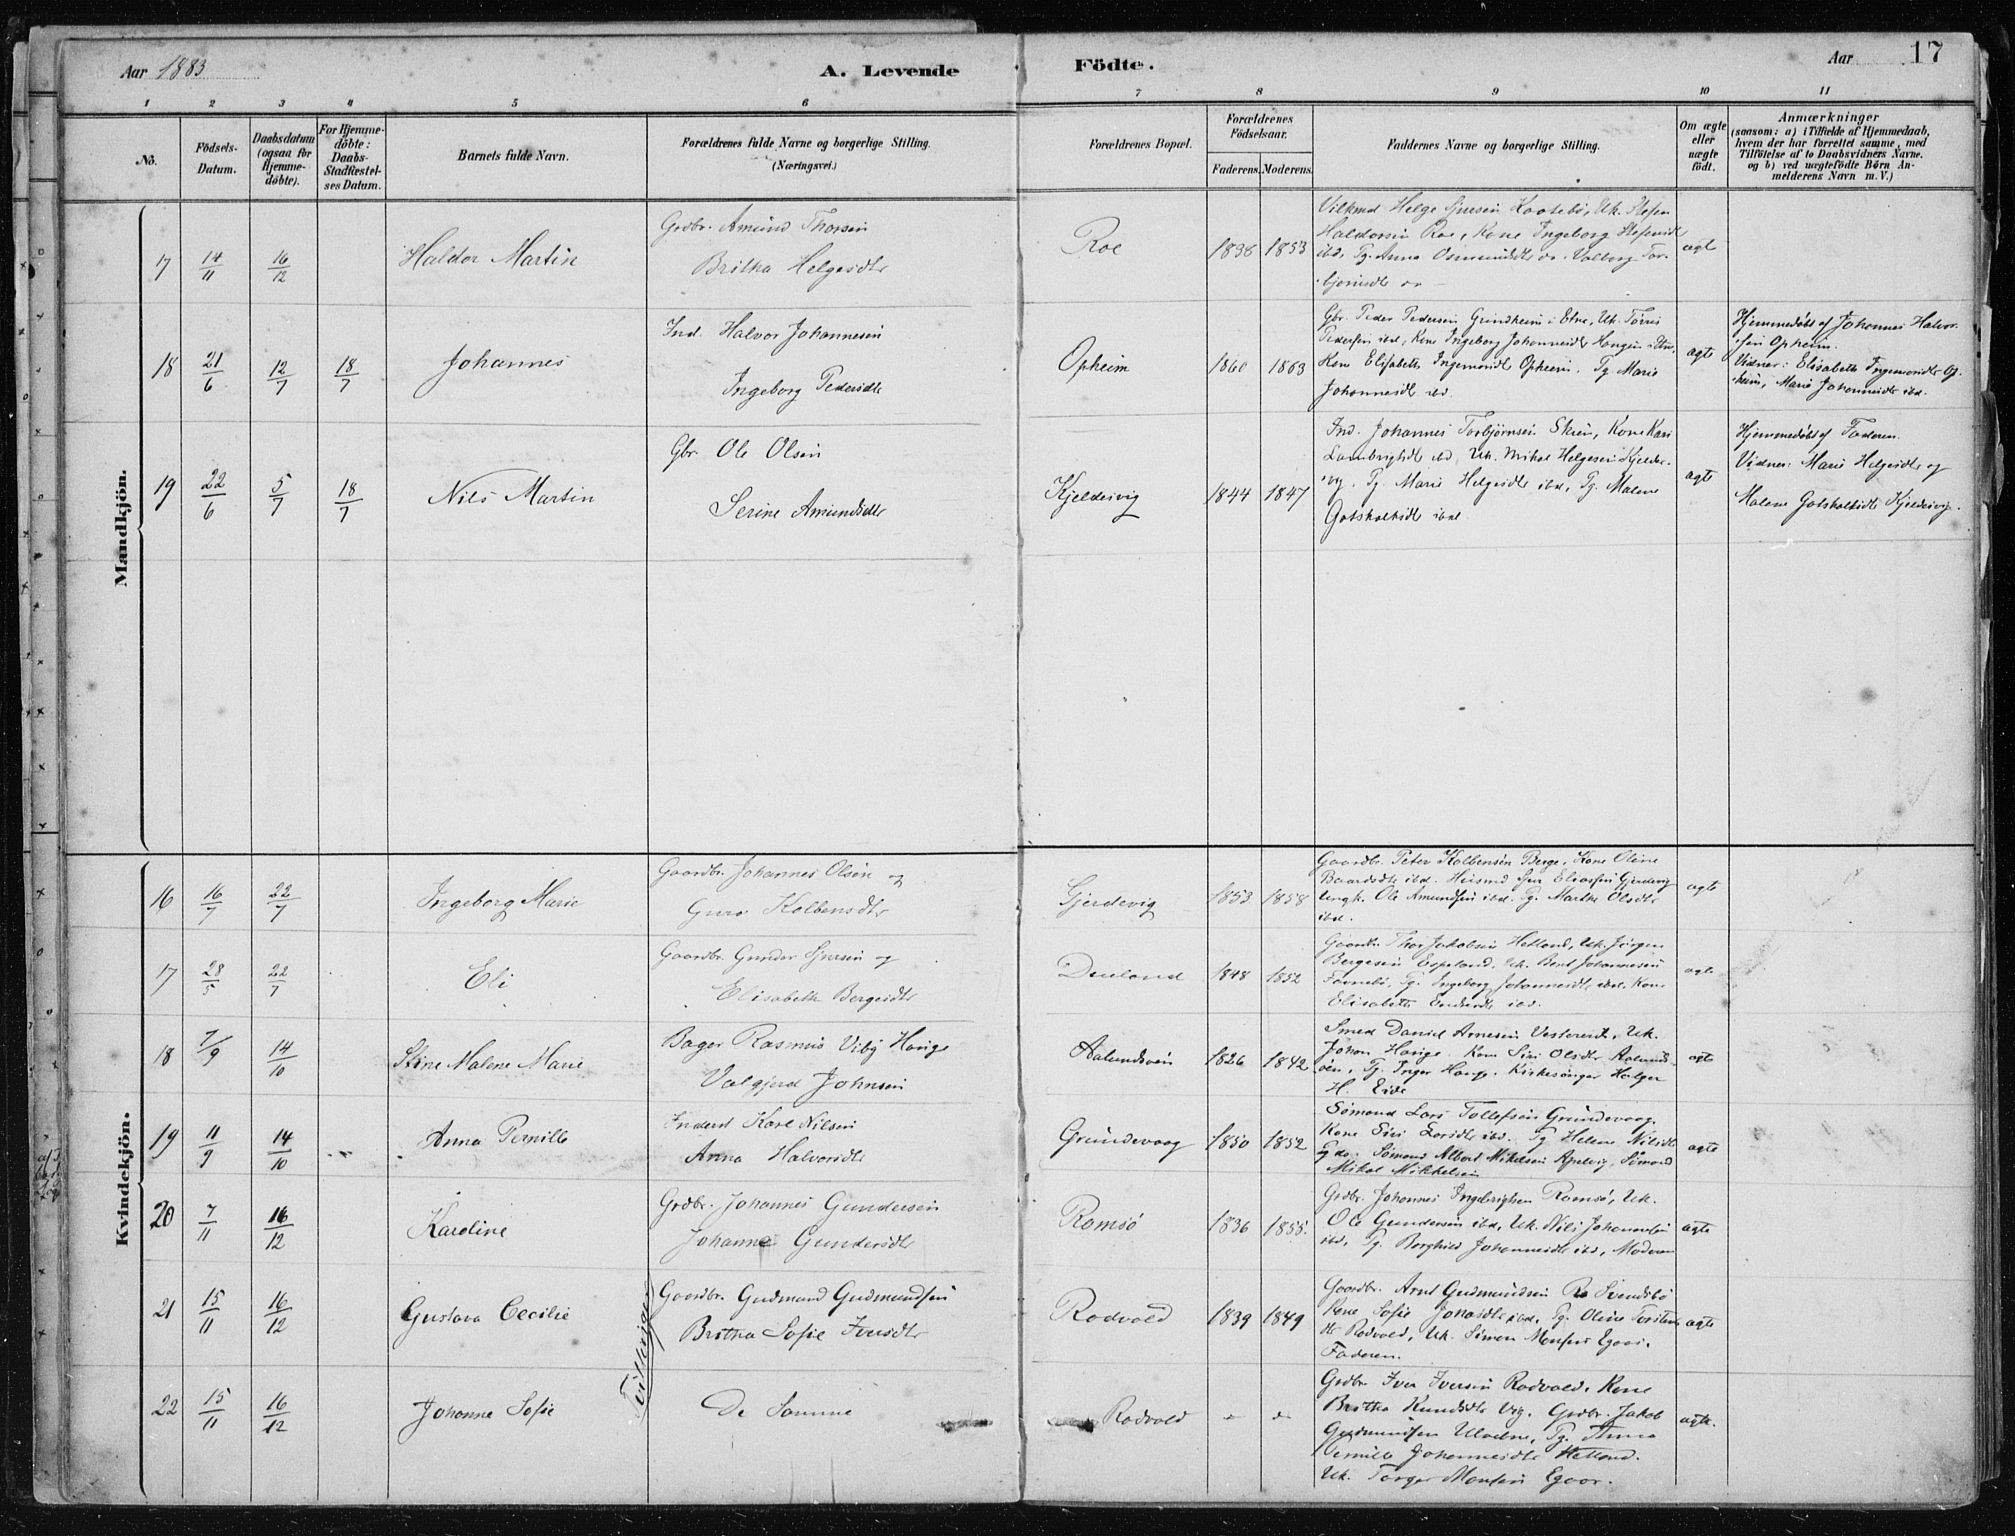 Aar 1883
A. Levende Födte.
Aar
17
1 2 3 4 5 6 7 8 9 10 11
No.
Födsels-Datum.
Daabsdatum (ogsaa for Hjemme-döbte).
For Hjemme-döbte: Daabs-Stadfæstel-ses Datum.
Barnets fulde Navn.
Forældrenes fulde Navne og borgerlige Stilling. (Næringsvei.)
Forældrenes Bopæl.
Forældrenes Födselsaar.
Faderens. Moderens.
Faddernes Navne og borgerlige Stilling.
Om ægte eller uægte født.
Anmærkninger
(saasom: a) i Tilfælde af Hjemmedaab, hvem der har forrettet samme, med Tilføielse af to Daabsvidners Navne, og b) ved uægtefödte Börn An-melderens Navn m. V.)
Mandkjön.
17 14/11 16/12 Haldor Martin
Grdbr. Amund Thorsen
Britha Helgesdtr
Roe 1836 1853
Helge Sjursen
Haldorsen Roe, Kone Ingeborg
ibd, Pg. Anna Osmundsdtr
ægte
18 21/6 12/7 18/7 Johannes
Ind. Halvor Johannesen
Ingeborg Pedersdtr
Opheim 1860 1863
Gbr. Peder Pedersen Grindheim i Etne, Uk. Tørris
Pedersen ibd, Kone Ingeborg Johannesdtr
Kone Elisabeth Ingemorsdt Opheim, Pg Marie
Johannesdt ibd.
ægte
Hjemmedøbt af Johannes Halvor-
sen Opheim.
Vidner: Elisabeth Ingemorsdtr Op-
heim, Marie Johannesdtr ibd.
19 22/6 5/7 18/7 Nils Martin
Gbr Ole Olsen
Serine Amundsdtr
Kjeldevig 1844 1847
Ind. Johannes Torbjørnsen Skien, Kone Kari
Lambregtsdt ibd, Uk. Mikal Helgesen Kjelde-
vig, Pg. Marie Helgesdtr ibd, Pg. Malene
Gotskalksdt ibd.
ægte
Hjemmedøbt af Faderen.
Vidner: Marie Helgesdtr og
Malene Gotskalksdtr Kjeldevig.
Kvindekjön.
16 16/7 22/7 Ingeborg Marie
Gaardbr. Johannes Olsen og
Guro Kolbensdtr
Gjerdevig 1853 1858
Gaardbr. Peter Kolbensen Berge, Kone Oline
Baardsdtr ibd. Husmd Sjur Eliassen Gjerdevig
Ungk. Ole Amundsen ibd. Pg. Marthe Olsdtr
ibd.
ægte
17 28/5 22/7 Eli
Gaardbr. Gunder Sjursen og
Elisabeth Bergesdtr
Dueland 1848 1852
Gaardbr. Thor Jakobsen Hetland, Uk. Jörgen
Bergesen Espeland, Uk. Bent Johannesen
Pg. Ingeborg Johannesdtr ibd. Kone
Elisabeth ibd.
ægte
18 7/9 14/10 Stine Malene Marie
Bager Rasmus Viby Hauge
Valgjerd Johnsen
Aalundsøen 1826 1842
Smed Daniel Arnesen Uk.
Johan Hauge. Kone Siri Olsdtr Aalunds-
øen, Pg. Inger Hauge. Kirkesanger Holger
H. Eide
ægte
19 11/9 14/10 Anna Pernille
Inderst Karl Nilsen
Anna Halvorsdtr
Grundevaag 1850 1852
Sømand Lars Tollefsen Grundevaag,
Kone Siri Larsdtr ibd. Pg Helene Nilsdtr
Sømand Albert Mikelsen Apelvig, Sømand
Mikal Mikkelsen
ægte
20 7/11 16/12 Karoline
Grdbr. Johannes Gundersen
Johanne Gundersdtr
Romsø 1836 1855.
Grdbr. Johannes Ingebrigtsen Romsø, Uk.
Ole Gundersen ibd, Uk. Nils Johannesen
ibd, Pg. Borghild Johannesdt ibd, Moderen
ægte
21 15/11 16/12 Gustava Cecilie
Tvillinger
Gaardbr. Gudmund Gudmundsen
Britha Sofie Iversdtr
Rødvold 1839 1849
Gaardbr. Arnt Gudmundsen Svendsbö
Kone Sofie Jonasdtr ibd, Pg. Oline
Rødvold, Uk. Simon Monsen Egaas,
Faderen.
ægte
22 15/11 16/12 Johanne Sofie
De Samme
Rødvold
Grdbr. Iver Iversen Rødvold, Kone
Britha Knudsdtr Vig. Grdbr. Jakob
Gudmundsen Ulveknæ, Pg. Anna
Pernille Johannesdtr Hetland.
Uk. Torger Monsen Egaas.
ægte.